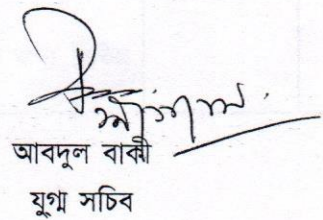 আবদুল বাকী
যুগ্ম সচিব